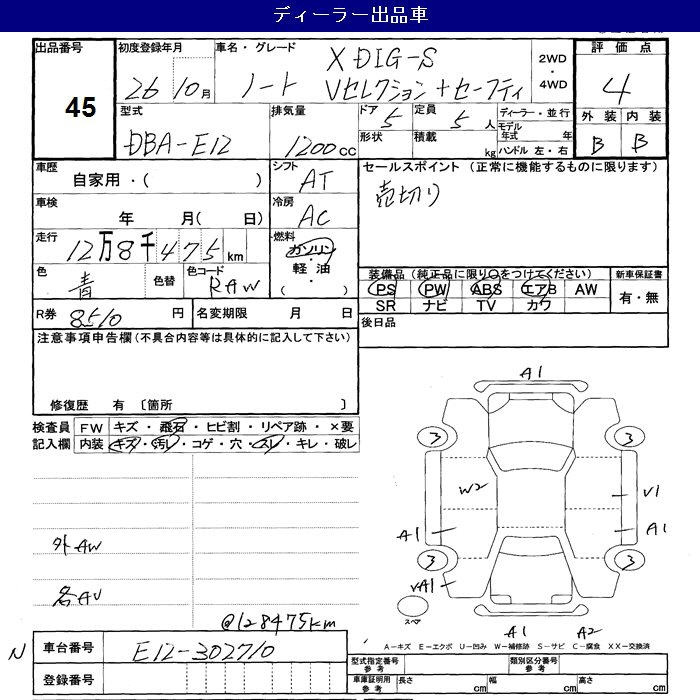 ディーラー出品車
出品番号 45
初度登録年月 26 10月
車名・グレード ノート X DIG-S Vセレクション+セーフティ
2WD ・ 4WD
評価点 4
外装 内装
B B
型式 DBA-E12
排気量 1200cc
ドア 5 定員 5人
形状 積載 kg
ディーラー・並行
モデル年式 年
ハンドル 左・右
車歴 自家用・( )
シフト AT
セールスポイント (正常に機能するものに限ります)
売切り
車検 年 月( 日)
冷房 AC
走行 12万8千475km
燃料 ガソリン・軽油・( )
色 青 色替 色コード RAW
装備品(純正品に限り○をつけてください) 新車保証書
PS PW ABS エアB AW 有・無
SR ナビ TV カワ
R券 8510円 名変期限 月 日
後日品
注意事項申告欄(不具合内容等は具体的に記入して下さい)
修復歴 有 〔箇所 〕
検査員 FW キズ・飛石・ヒビ割・リペア跡・×要
記入欄 内装 キズ・汚レ・コゲ・穴・スレ・キレ・破レ
A1
3 3
W2 V1
A1 A1
3 3
VA1
スペア
A1 A2
外AW
各AU
@128475km
N 車台番号 E12-302710
登録番号
A－キズ E－エクボ U－凹み W－補修跡 S－サビ C－腐食 XX－交換済
型式指定番号 参考 類別区分番号 参考
車庫証明用 参考 長さ cm 幅 cm 高さ cm